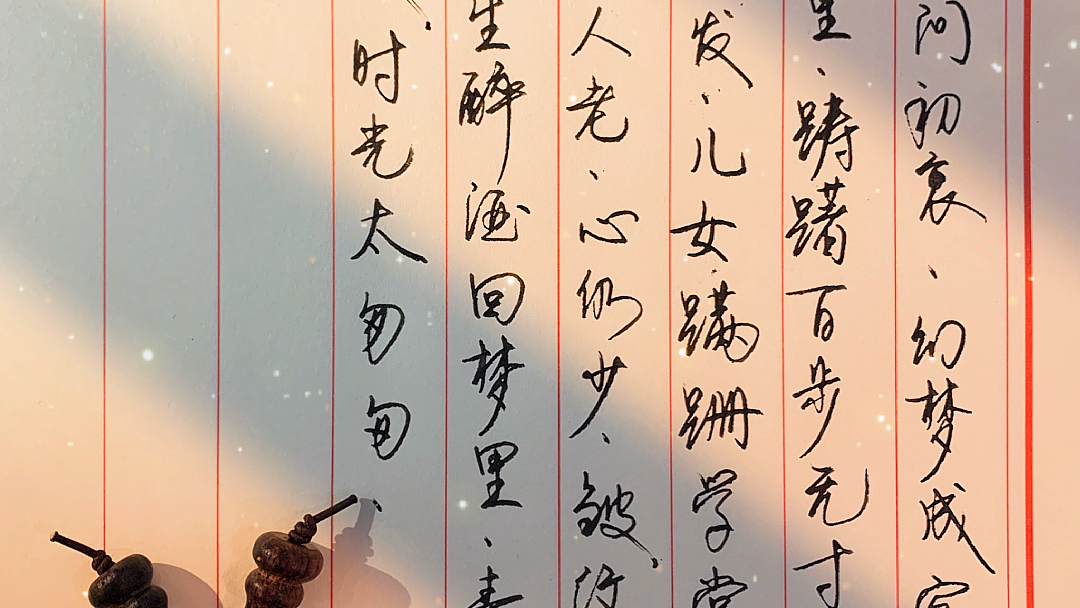 问初衷、幻梦成空
里、踌躇百步无寸
发、儿女蹒跚学堂
人老、心仍少、皱
生醉酒回梦里、
时光太匆匆、